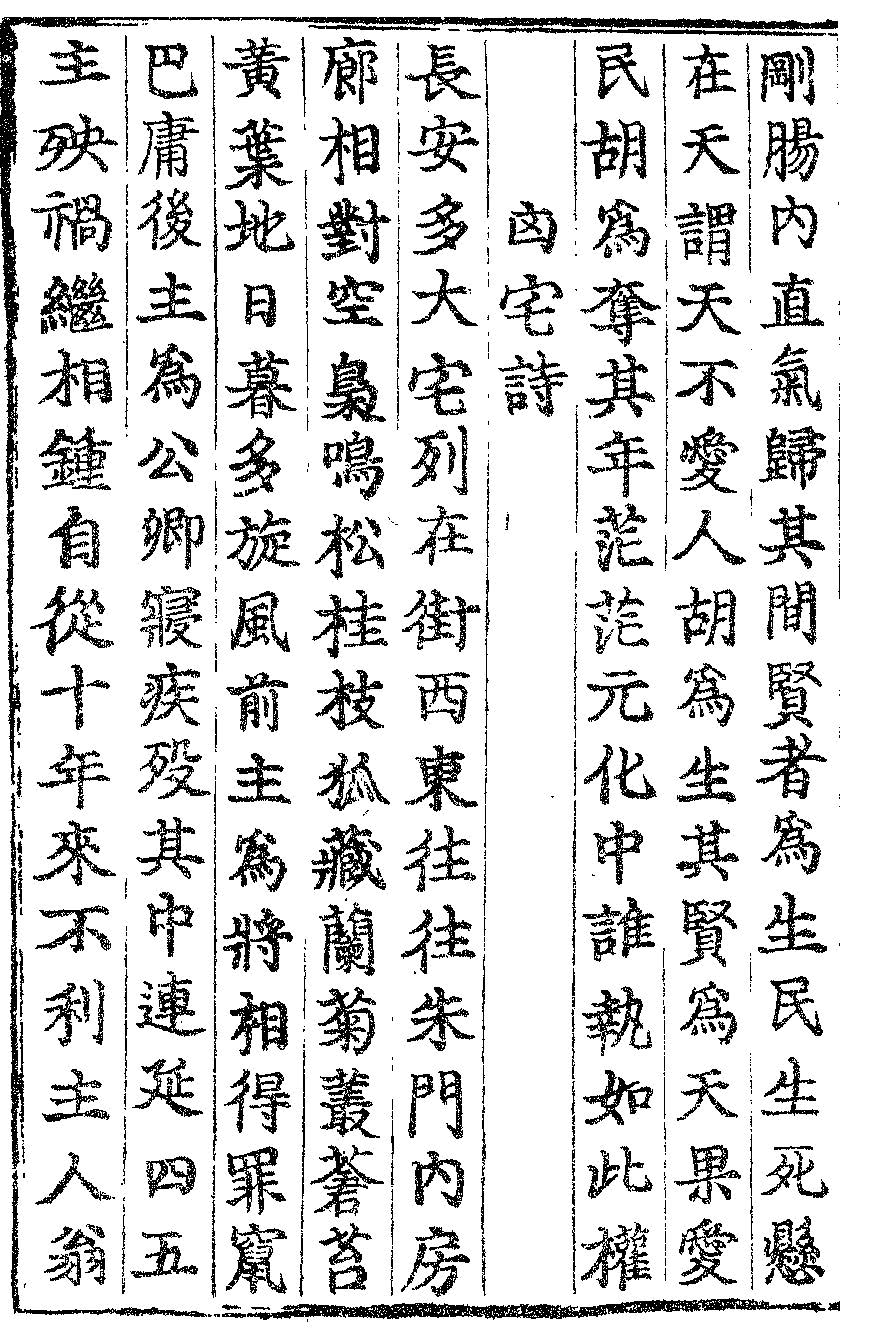 剛腸內直氣歸其間賢者爲生民生死懸
在天謂天不愛人胡爲生其賢爲天果愛
民胡爲奪其年茫茫元化中誰執如此權
凶宅詩
長安多大宅列在街西東往往朱門內房
廊相對空梟鳴松桂枝狐藏蘭菊叢蒼苔
黃葉地日暮多旋風前主爲將相得罪竄
巴庸後主爲公卿寢疾歿其中連延四五
主殃禍繼相鍾自從十年來不利主人翁